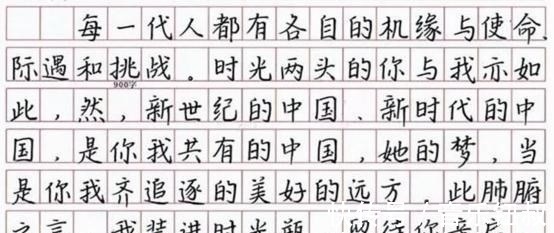 每一代人都有各自的机缘与使命、
际遇和挑战。时光两头的你与我亦如
900字
此，然，新世纪的中国、新时代的中
国，是你我共有的中国，她的梦，当
是你我齐追逐的美好的远方，此肺腑
之言 我装进时光 留待你亲启